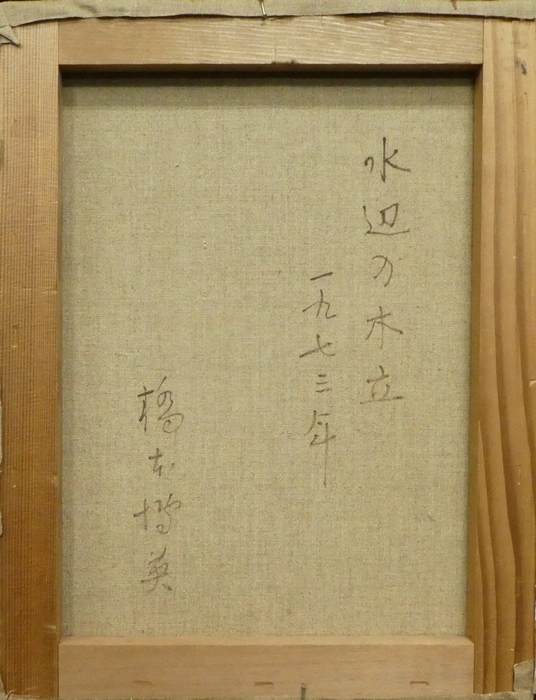 水辺の木立
一九七三年
橋本博英